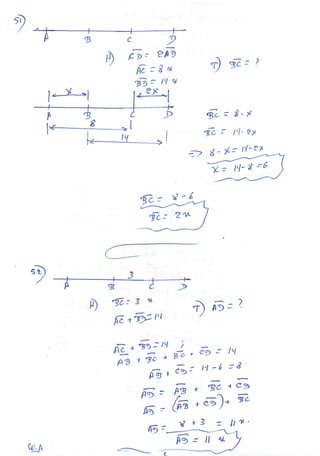 51)
A B C D
H) CD = 2AB
AC = 8 m
BD = 14 m
T) BC = ?
x 2x
A B C D
8
14
BC = 8-x
BC = 14-2x
=> 8-x = 14-2x
x = 14-8 = 6
BC = 8-6
BC = 2m
52)
3
A B C D
H) BC = 3 m
AC + BD = 14
T) AD = ?
AC + BD = 14 ;
AB + BC + BC + CD = 14
AB + CD = 14-6 = 8
AD = AB + BC + CD
AD = (AB + CD) + BC
AD = 8 + 3 = 11 m.
AD = 11 m